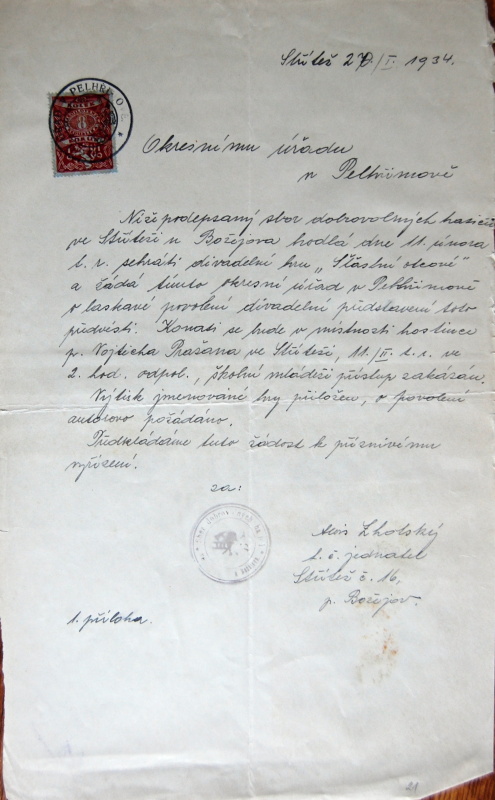 Střítež 27/I. 1934.
PELHŘIMOV
KOLEK
Okresnímu úřadu
v Pelhřimově
Níže podepsaný sbor dobrovolných hasičů
ve Stříteži u Božejova hodlá dne 11. února
t. r. sehráti divadelní hru „Šťastní otcové"
a žádá tímto okresní úřad v Pelhřimově
o laskavé povolení divadelní představení toto
předvésti. Konati se bude v místnosti hostince
p. Vojtěcha Pražana ve Stříteži, 11./II. t. r. ve
2. hod. odpol., školní mládeži přístup zakázán.
Výtisk jmenované hry přiložen, o povolení
autorovo požádáno.
Předkládáme tuto žádost k příznivému
vyřízení.
za:
Alois Lhotský
t. č. jednatel
Střítež č. 16,
p. Božejov.
1. příloha.
21